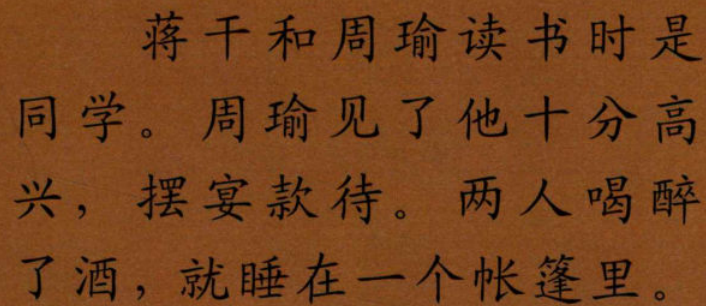 蒋干和周瑜读书时是
同学。周瑜见了他十分高
兴，摆宴款待。两人喝醉
了酒，就睡在一个帐篷里。